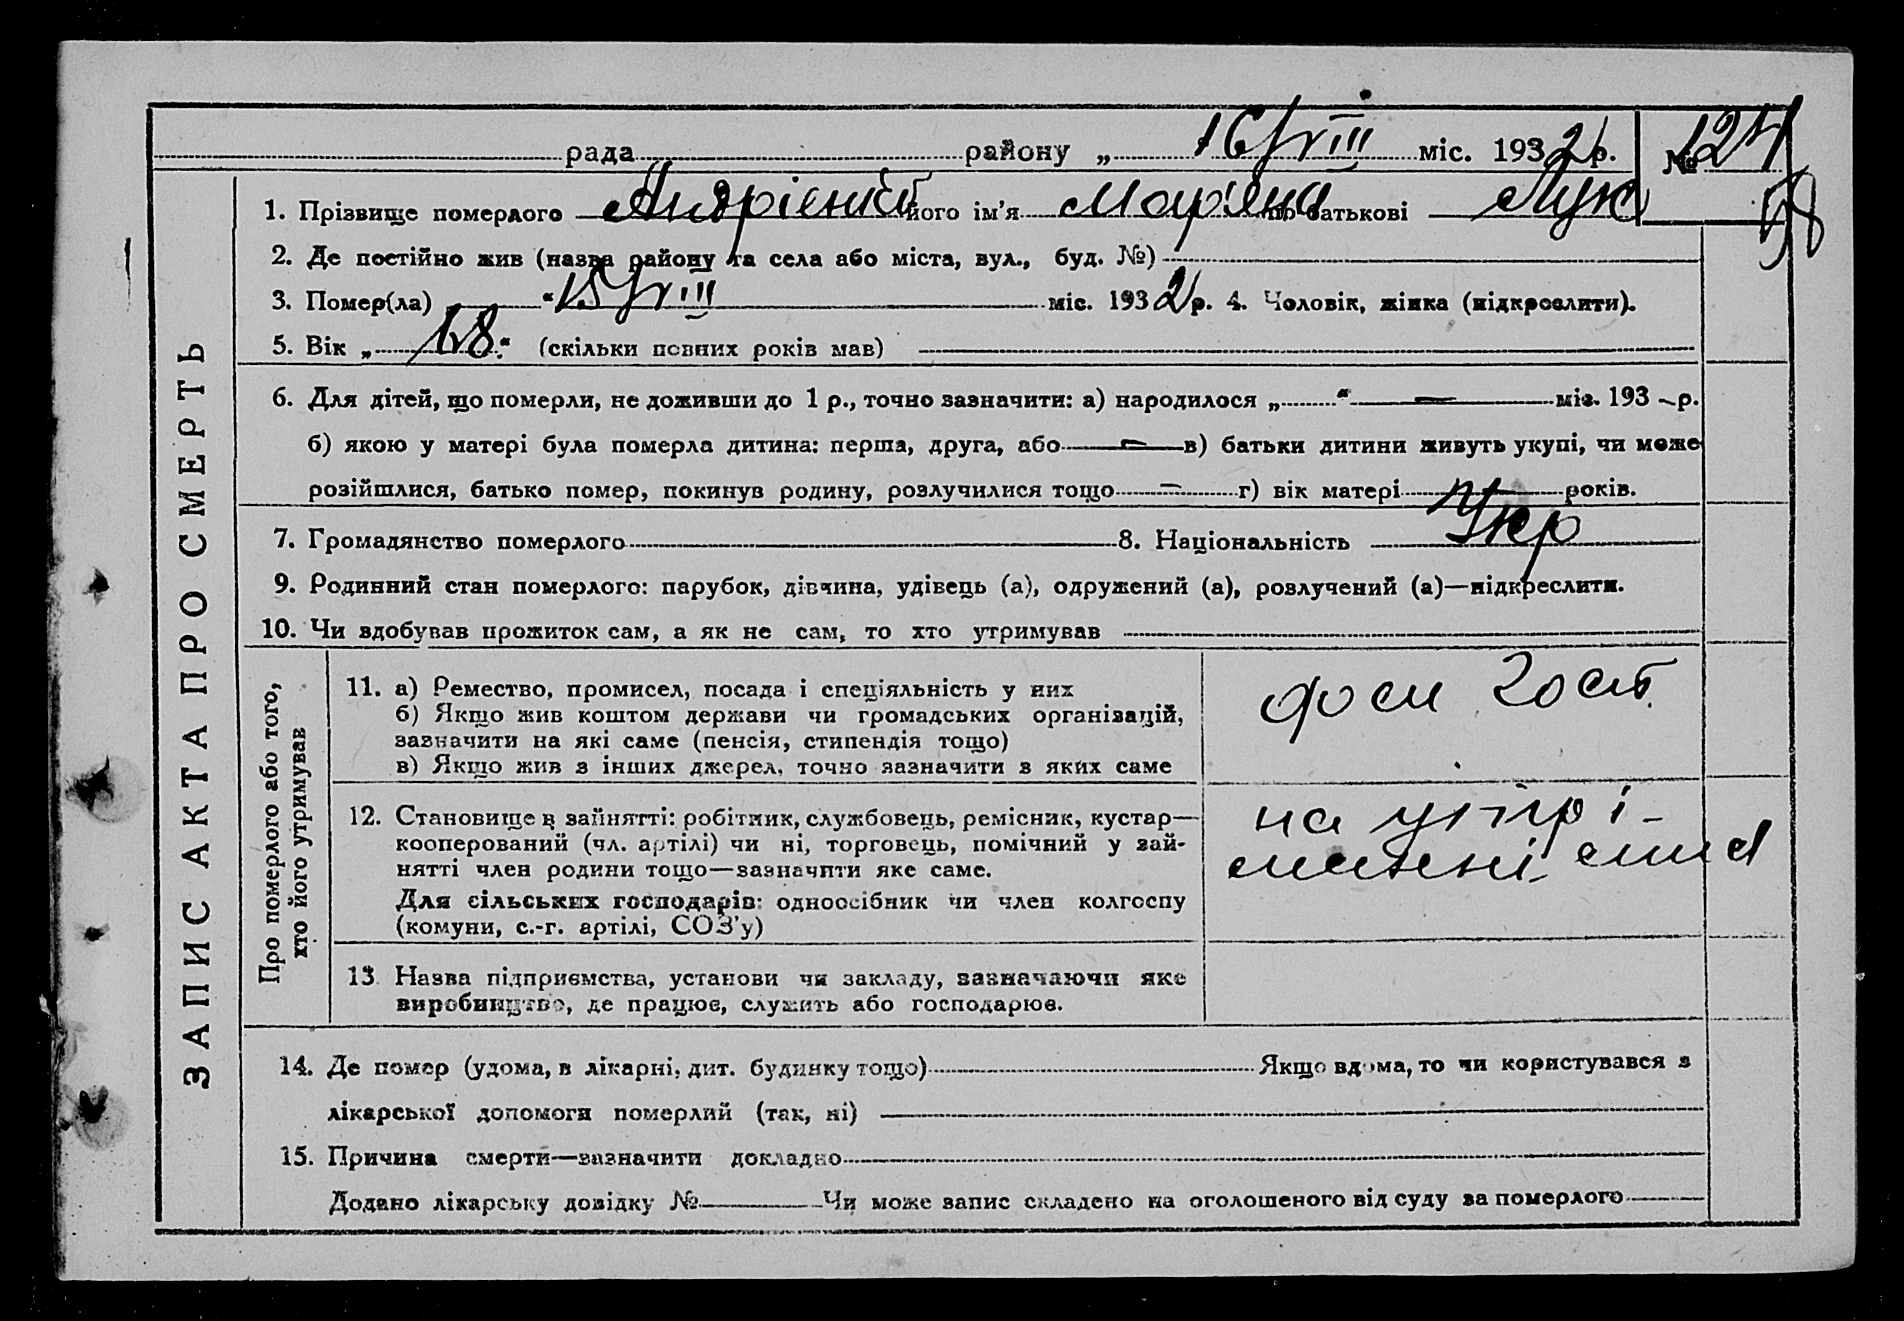 рада района „ 16/VIII міс. 1932 р. № 124
1. Прізвище померлого його ім’я Мар'яна по батькові Лук 68
2. Де постійно жив (назва району та села або міста, вул., буд. №)
3. Помер(ла) „15/VIII міс. 1932 р. 4. Чоловік, жінка (підкреслити).
5. Вік „ 68 “ (скільки повних років мав)
6. Для дітей, що померли, не доживши до 1 р., точно зазначити: а) народилося „ “ — міс. 193 – р.
б) якою у матері була померла дитина: перша, друга, або — в) батьки дитини живуть укупі, чи може
розійшлися, батько помер, покинув родину, розлучилися тощо — г) вік матері — років.
7. Громадянство померлого 8. Національність Укр
9. Родинний стан померлого: парубок, дівчина, удівець (а), одружений (а), розлучений (а)—підкреслити.
10. Чи здобував прожиток сам, а як не сам, то хто утримував
ЗАПИС АКТА ПРО СМЕРТЬ
Про померлого або того,
хто його утримував
11. а) Ремество, промисел, посада і спеціяльність у них
б) Якщо жив коштом держави чи громадських організацій,
зазначити на які саме (пенсія, стипендія тощо)
в) Якщо жив з інших джерел, точно зазначити з яких саме
12. Становище в зайнятті: робітник, службовець, ремісник, кустар—
кооперований (чл. артілі) чи ні, торговець, помічний у зай-
нятті член родини тощо—зазначити яке саме.
Для сільських господарів: одноосібник чи член колгоспу
(комуни, с.-г. артілі, СОЗ’у)
на утрі-
манні сина
13. Назва підприємства, установи чи закладу, зазначаючи яке
виробництво, де працює, служить або господарює.
14. Де помер (удома, в лікарні, дит. будинку тощо) Якщо вдома, то чи користувався з
лікарської допомоги померлий (так, ні)
15. Причина смерти—зазначити докладно
Додано лікарську довідку № Чи може запис складено на оголошеного від суду за померлого